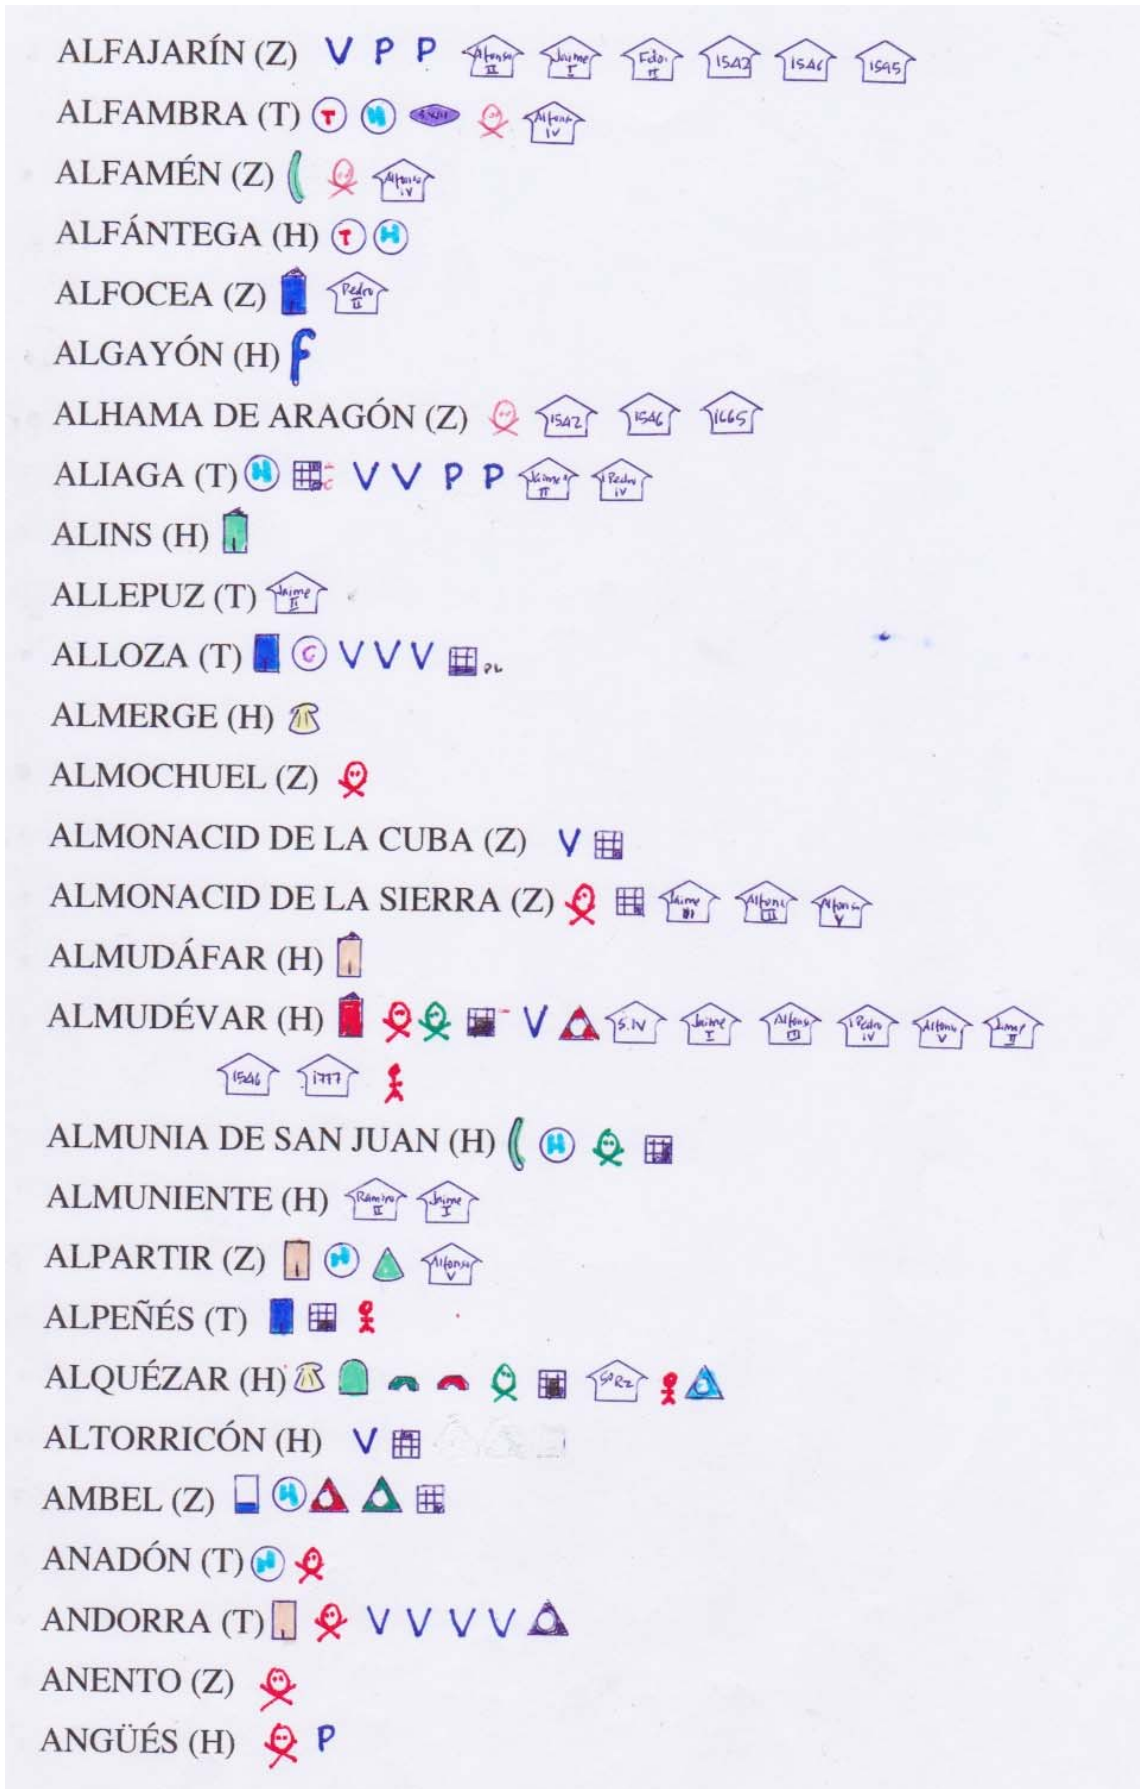 ALFAJARÍN (Z) V P P Alfonso II Jaime I Fdo. II 1542 1546 1595
ALFAMBRA (T) T H S.XIII Alfonso IV
ALFAMÉN (Z) Alfonso IV
ALFÁNTEGA (H) T H
ALFOCEA (Z) Pedro II
ALGAYÓN (H) F
ALHAMA DE ARAGÓN (Z) 1542 1546 1665
ALIAGA (T) H C V V P P Jaime II Pedro IV
ALINS (H)
ALLEPUZ (T) Jaime II
ALLOZA (T) C V V V PL
ALMERGE (H)
ALMOCHUEL (Z)
ALMONACID DE LA CUBA (Z) V
ALMONACID DE LA SIERRA (Z) Jaime Alfonso III Alfonso V
ALMUDÁFAR (H)
ALMUDÉVAR (H) V S.IV Jaime I Alfonso III Pedro IV Alfonso V Jaime II
1546 1717
ALMUNIA DE SAN JUAN (H) H
ALMUNIENTE (H) Ramiro II Jaime I
ALPARTIR (Z) H Alfonso V
ALPEÑÉS (T)
ALQUÉZAR (H)
ALTORRICÓN (H) V
AMBEL (Z) H
ANADÓN (T) H
ANDORRA (T) V V V V
ANENTO (Z)
ANGÜÉS (H) P